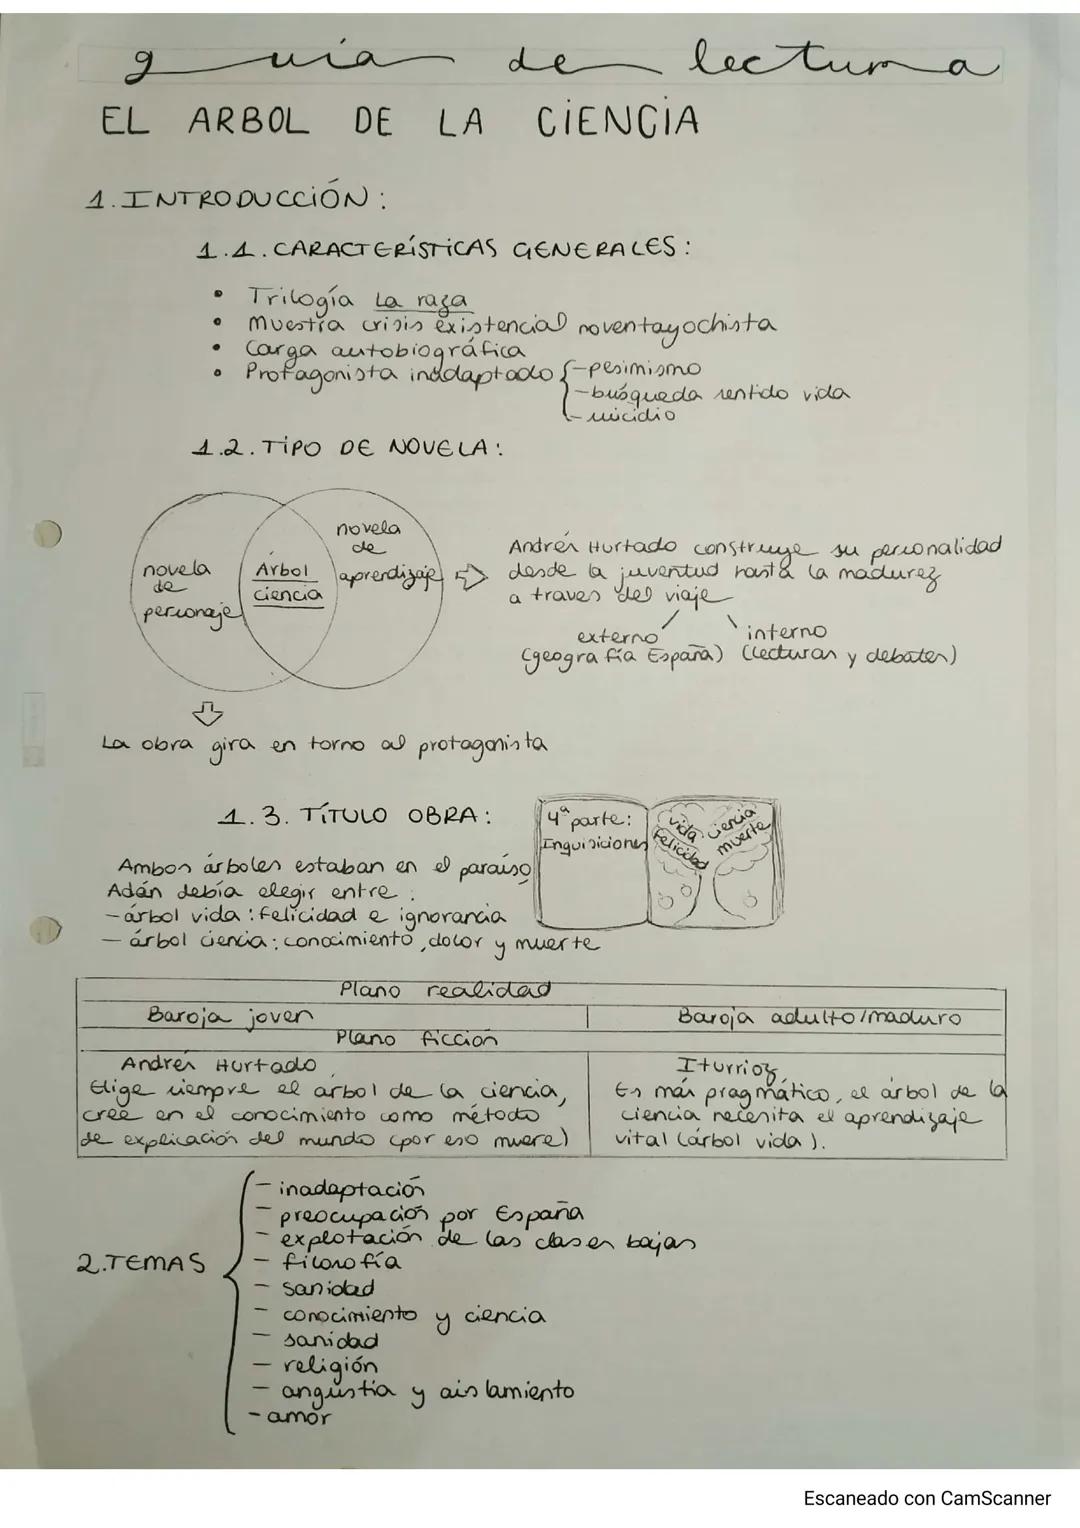 guía de lectura
EL ARBOL DE LA CIENCIA
1. INTRODUCCIÓN:
1.1. CARACTERÍSTICAS GENERALES:
• Trilogía La raza
• Muestra crisis existencial noventayochista
• Carga autobiográfica
• Protagonista inadaptado { -pesimismo
-búsqueda sentido vida
-suicidio
1.2. TIPO DE NOVELA:
novela
de
personaje
Árbol
ciencia
novela
de
aprendizaje
Andrés Hurtado construye su personalidad
desde la juventud hasta la madurez
a traves del viaje
externo
(geografía España)
interno
(lecturas y debates)
La obra gira en torno al protagonista
1.3. TÍTULO OBRA:
4ª parte:
Inquisiciones
vida
Felicidad
ciencia
muerte
Ambos árboles estaban en el paraíso
Adán debía elegir entre:
-árbol vida: felicidad e ignorancia
- árbol ciencia: conocimiento, dolor y muerte
Plano realidad
Baroja joven | Baroja adulto/maduro
Plano ficción
Andrés Hurtado
Elige siempre el arbol de la ciencia,
cree en el conocimiento como método
de explicación del mundo (por eso muere)
Iturrioz
Es más pragmático, el árbol de la
ciencia necesita el aprendizaje
vital (árbol vida).
2. TEMAS
- inadaptación
- preocupación por España
- explotación de las clases bajas
- filosofía
- sanidad
- conocimiento y ciencia
- sanidad
- religión
- angustia y aislamiento
- amor
Escaneado con CamScanner